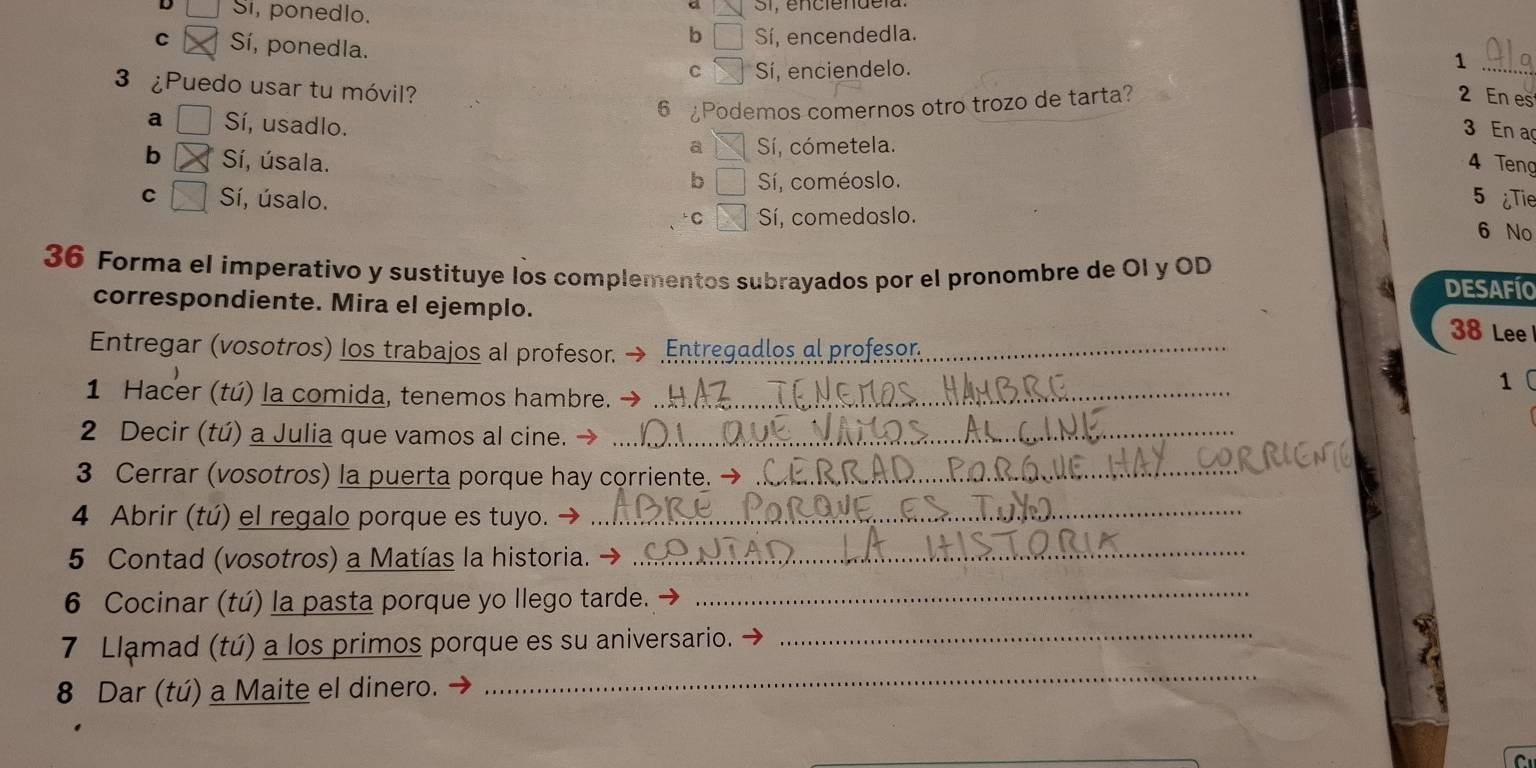 Sí, ponedlo.
c Sí, ponedla.
3 ¿Puedo usar tu móvil?
a Sí, usadlo.
b Sí, úsala.
c Sí, úsalo.
Sí, enciéndela.
b Sí, encendedla.
c Sí, enciendelo.
6 ¿Podemos comernos otro trozo de tarta?
a Sí, cómetela.
b Sí, coméoslo.
c Sí, comedoslo.
36 Forma el imperativo y sustituye los complementos subrayados por el pronombre de OI y OD
correspondiente. Mira el ejemplo.
Entregar (vosotros) los trabajos al profesor. → Entregadlos al profesor.
1 Hacer (tú) la comida, tenemos hambre. → HAZ TENEMOS HAMBRE
2 Decir (tú) a Julia que vamos al cine. → DI QUE VAMOS AL CINE
3 Cerrar (vosotros) la puerta porque hay corriente. → CERRAD PORQUE HAY CORRIENTE
4 Abrir (tú) el regalo porque es tuyo. → ABRE PORQUE ES TUYO
5 Contad (vosotros) a Matías la historia. → CONTAD LA HISTORIA
6 Cocinar (tú) la pasta porque yo llego tarde. →
7 Llamad (tú) a los primos porque es su aniversario. →
8 Dar (tú) a Maite el dinero. →
1
2 En es
3 En
4 Teng
5 ¿Tie
6 No
DESAFÍO
38 Lee
1